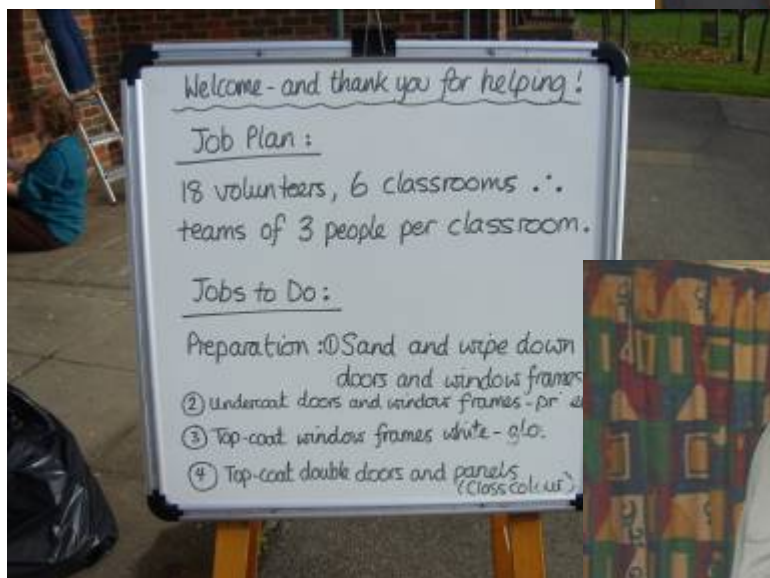 Welcome - and thank you for helping!
Job Plan:
18 volunteers, 6 classrooms ∴
teams of 3 people per classroom.
Jobs to Do:
Preparation: ① Sand and wipe down
doors and window frames
② Undercoat doors and window frames -
③ Top-coat window frames white -
④ Top-coat double doors and panels
(Class colour)